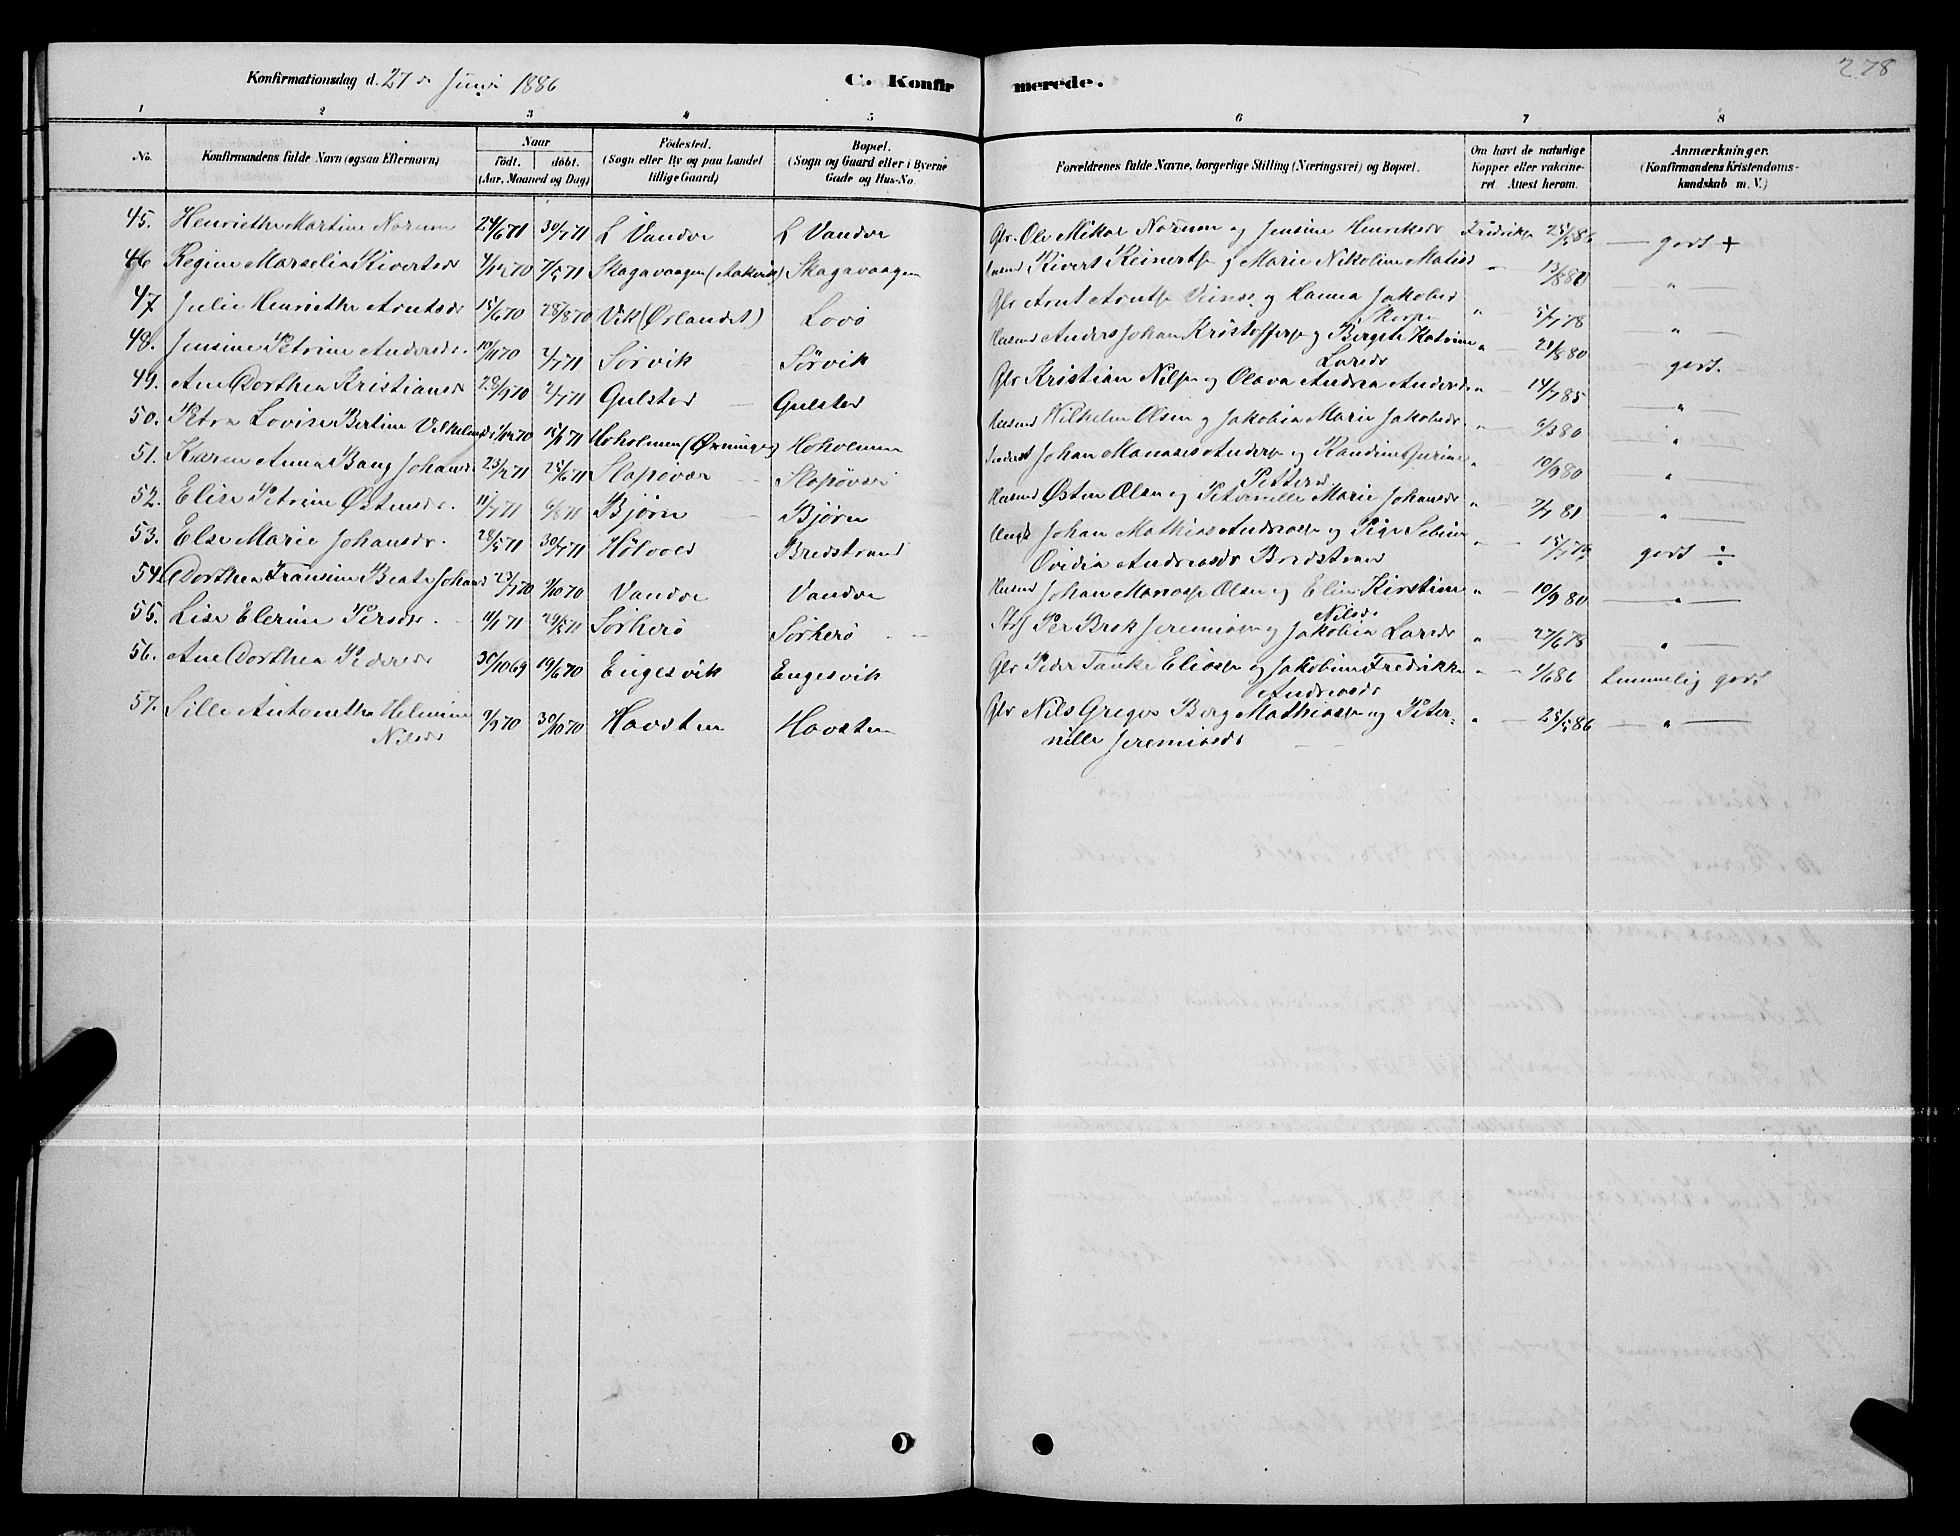 Konfirmationsdag d. 27de Juni 1886
C. Konfirmerede.
278
1 2 3 4 5 6 7 8
No. Konfirmandens fulde Navn (ogsaa Efternavn) Naar født. døbt. (Aar, Maaned og Dag) Fødested. (Sogn eller By og paa Landet tillige Gaard) Bopæl. (Sogn og Gaard eller i Byerne Gade og Hus-No. Forældrenes fulde Navne, borgerlige Stilling (Næringsvei) og Bopæl. Om havt de naturlige Kopper eller vakcineret. Attest herom. Anmærkninger. (Konfirmandens Kristendomskundskab m. V.)
45. Henriethe Martine Norum 24/6 71 30/7 71 L Vandvr L Vandvr Gbr. Ole Mikar Norum og Jensine Henriksdr Fredriks 25/5 86 — godt +
46 Regine Marselia Sivertsdr 4/12 70 7/5 71 Skagavaagen (Aakvik) Skagavaagen Husmd Sivert Reinertsn og Marie Nikoline Matisd " 13/8 80 "
47. Julie Henriethe Arntsdr 15/6 70 28/8 70 Vik (Ørlandet) Lovö Gbr Arnt Arntsn og Hanna Jakobsd Skorpen " 5/7 78 "
48. Jensine Petrine Andersdr. 10/11 70 2/7 71 Sørvik Sørvik Husmd Anders Johan Kristoffersn og Bergite Katrine Larsdr " 21/8 80 — godt.
49. Ane Dorthea Kristiansd 28/9 70 2/7 71 Gulstad Gulstad Gbr Kristian Nilsn og Olava Andrea Andersd " 14/7 85 "
50. Petra Lovise Bertine Vilhelmsd 1/12 70 15/1 71 Hoholmen (Ørninger) Hoholmen Husmd Vilhelm Olsn og Jakobia Marie Jakobsdr. " 6/3 80 "
51. Karen Anna Bang Johansd 23/2 71 25/6 71 Slapövær Slapövær Inderst Johan Manases Andersn og Randine Gurine Pettersd " 10/9 80 "
52. Elise Petrine Østensdr. 11/7 71 6/8 71 Bjørn Bjørn Husmd Østen Olsn og Peternille Marie Johansdr " 7/7 81 "
53. Else Marie Johansdr. 28/5 71 30/7 71 Hølvold Bredstrand Ungk Johan Mathias Andreassn og Pige Sebine Ovidia Andreasdr Bredstrand " godt ÷
54. Dorthea Fransine Beate Johansd 23/7 70 9/10 70 Vandvr Vandvr Husmd Johan Manassn Olsn og Elen Kirstine Nilsdr " 10/9 80 "
55. Lise Elerine Persdr. 11/1 71 29/5 71 Sørherö Sørherö Per Brok Jeremiassn og Jakobia Larsdr " 27/6 78 "
56. Ane Dorthea Pedersdr 30/10 69 19/6 70 Engesvik Engesvik Gbr Peder Tanke Eliassn og Jakobine Fredrikke Andreasdr " 1/6 86 temmelig godt
57. Sille Antonetha Helmine Nilsdr 9/9 70 30/10 70 Havsten Havsten Gbr Nils Greger Borg Mathiassn og Peternille Jeremiasdr " 25/5 86 "